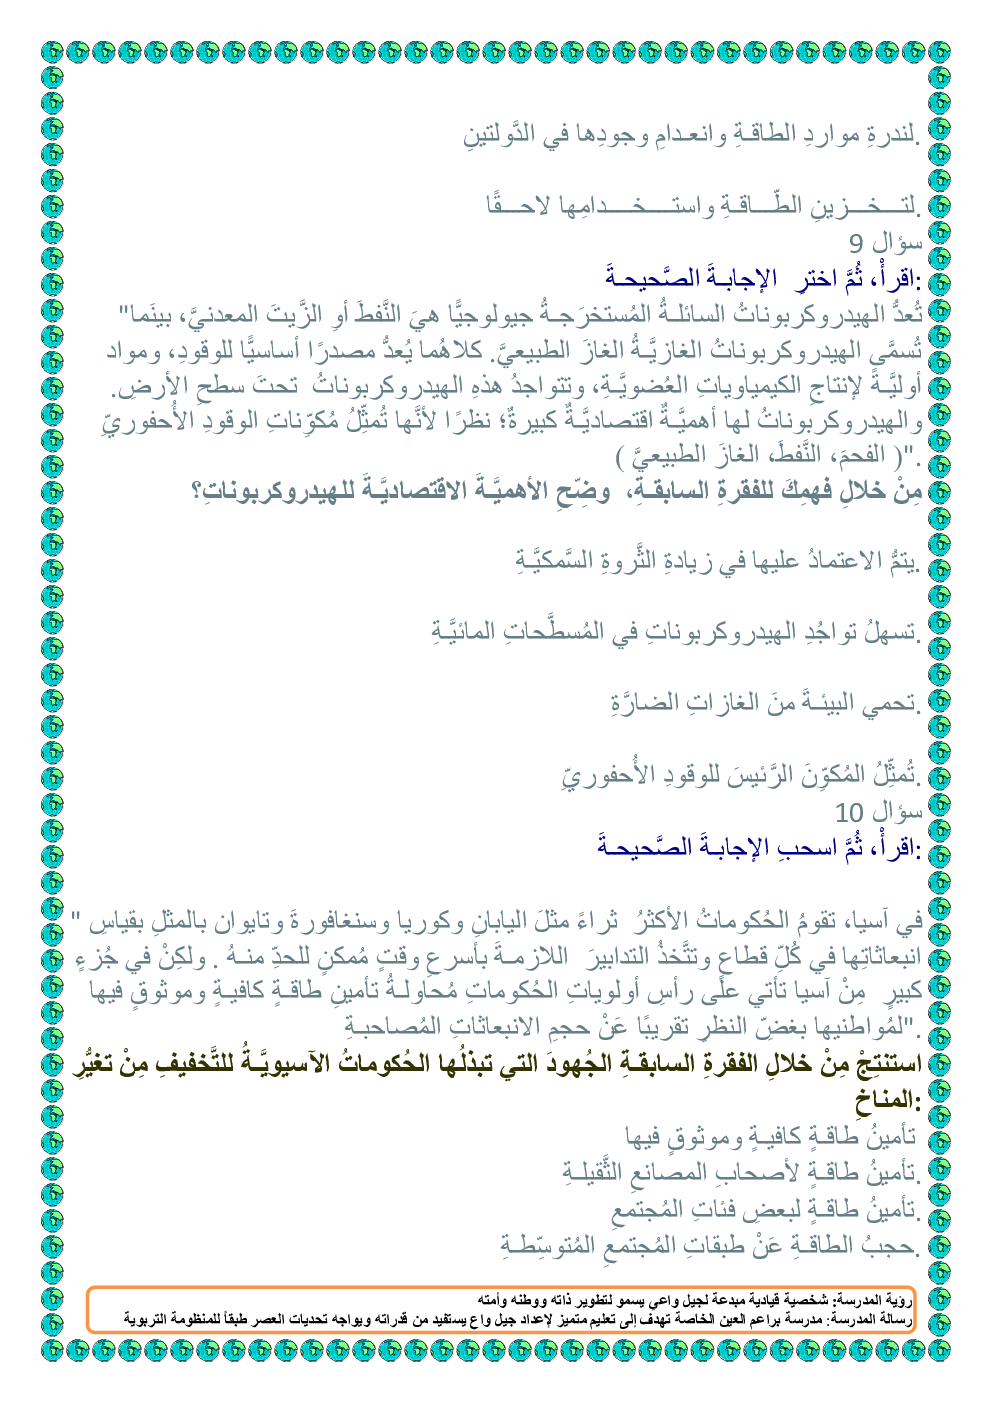 .لندرةِ مواردِ الطاقةِ وانعدامِ وجودِها في الدَّولتينِ
.لتـــخـــزينِ الطّـــاقةِ واستــــخــــدامِها لاحـــقًا
سؤال 9
:اقرأْ، ثُمَّ اخترِ الإجابةَ الصَّحيحةَ
تُعدُّ الهيدروكربوناتُ السائلةُ المُستخرَجةُ جيولوجيًّا هيَ النَّفطَ أوِ الزَّيتَ المعدنيَّ، بينَما"
تُسمَّى الهيدروكربوناتُ الغازيَّةُ الغازَ الطبيعيَّ. كلاهُما يُعدُّ مصدرًا أساسيًّا للوقودِ، ومواد
أوليَّةً لإنتاجِ الكيمياوياتِ العُضويَّةِ، وتتواجدُ هذهِ الهيدروكربوناتُ تحتَ سطحِ الأرضِ.
والهيدروكربوناتُ لها أهميَّةٌ اقتصاديَّةٌ كبيرةٌ؛ نظرًا لأنَّها تُمثِّلُ مُكوِّناتِ الوقودِ الأُحفوريِّ
."( الفحمَ، النَّفطَ، الغازَ الطبيعيَّ )
مِنْ خلالِ فهمِكَ للفقرةِ السابقةِ، وضِّحِ الأهميَّةَ الاقتصاديَّةَ للهيدروكربوناتِ؟
.يتمُّ الاعتمادُ عليها في زيادةِ الثَّروةِ السَّمكيَّةِ
.تسهلُ تواجُدِ الهيدروكربوناتِ في المُسطَّحاتِ المائيَّةِ
.تحمي البيئةَ منَ الغازاتِ الضارَّةِ
.تُمثِّلُ المُكوِّنَ الرَّئيسَ للوقودِ الأُحفوريِّ
سؤال 10
:اقرأْ، ثُمَّ اسحبِ الإجابةَ الصَّحيحةَ
في آسيا، تقومُ الحُكوماتُ الأكثرُ ثراءً مثلَ اليابانِ وكوريا وسنغافورةَ وتايوان بالمثلِ بقياسِ "
انبعاثاتِها في كُلِّ قطاعٍ وتتَّخذُ التدابيرَ اللازمةَ بأسرعِ وقتٍ مُمكنٍ للحدِّ منهُ . ولكِنْ في جُزءٍ
كبيرٍ مِنْ آسيا تأتي على رأسِ أولوياتِ الحُكوماتِ مُحاولةُ تأمينِ طاقةٍ كافيةٍ وموثوقٍ فيها
."لمُواطنيها بغضِّ النظرِ تقريبًا عَنْ حجمِ الانبعاثاتِ المُصاحبةِ
استنتِجْ مِنْ خلالِ الفقرةِ السابقةِ الجُهودَ التي تبذلُها الحُكوماتُ الآسيويَّةُ للتَّخفيفِ مِنْ تغيُّرِ
:المناخِ
تأمينُ طاقةٍ كافيةٍ وموثوقٍ فيها
.تأمينُ طاقةٍ لأصحابِ المصانعِ الثَّقيلةِ
.تأمينُ طاقةٍ لبعضِ فئاتِ المُجتمعِ
.حجبُ الطاقةِ عَنْ طبقاتِ المُجتمعِ المُتوسِّطةِ
رؤية المدرسة: شخصية قيادية مبدعة لجيل واعي يسمو لتطوير ذاته ووطنه وأمته
رسالة المدرسة: مدرسة براعم العين الخاصة تهدف إلى تعليم متميز لإعداد جيل واع يستفيد من قدراته ويواجه تحديات العصر طبقاً للمنظومة التربوية